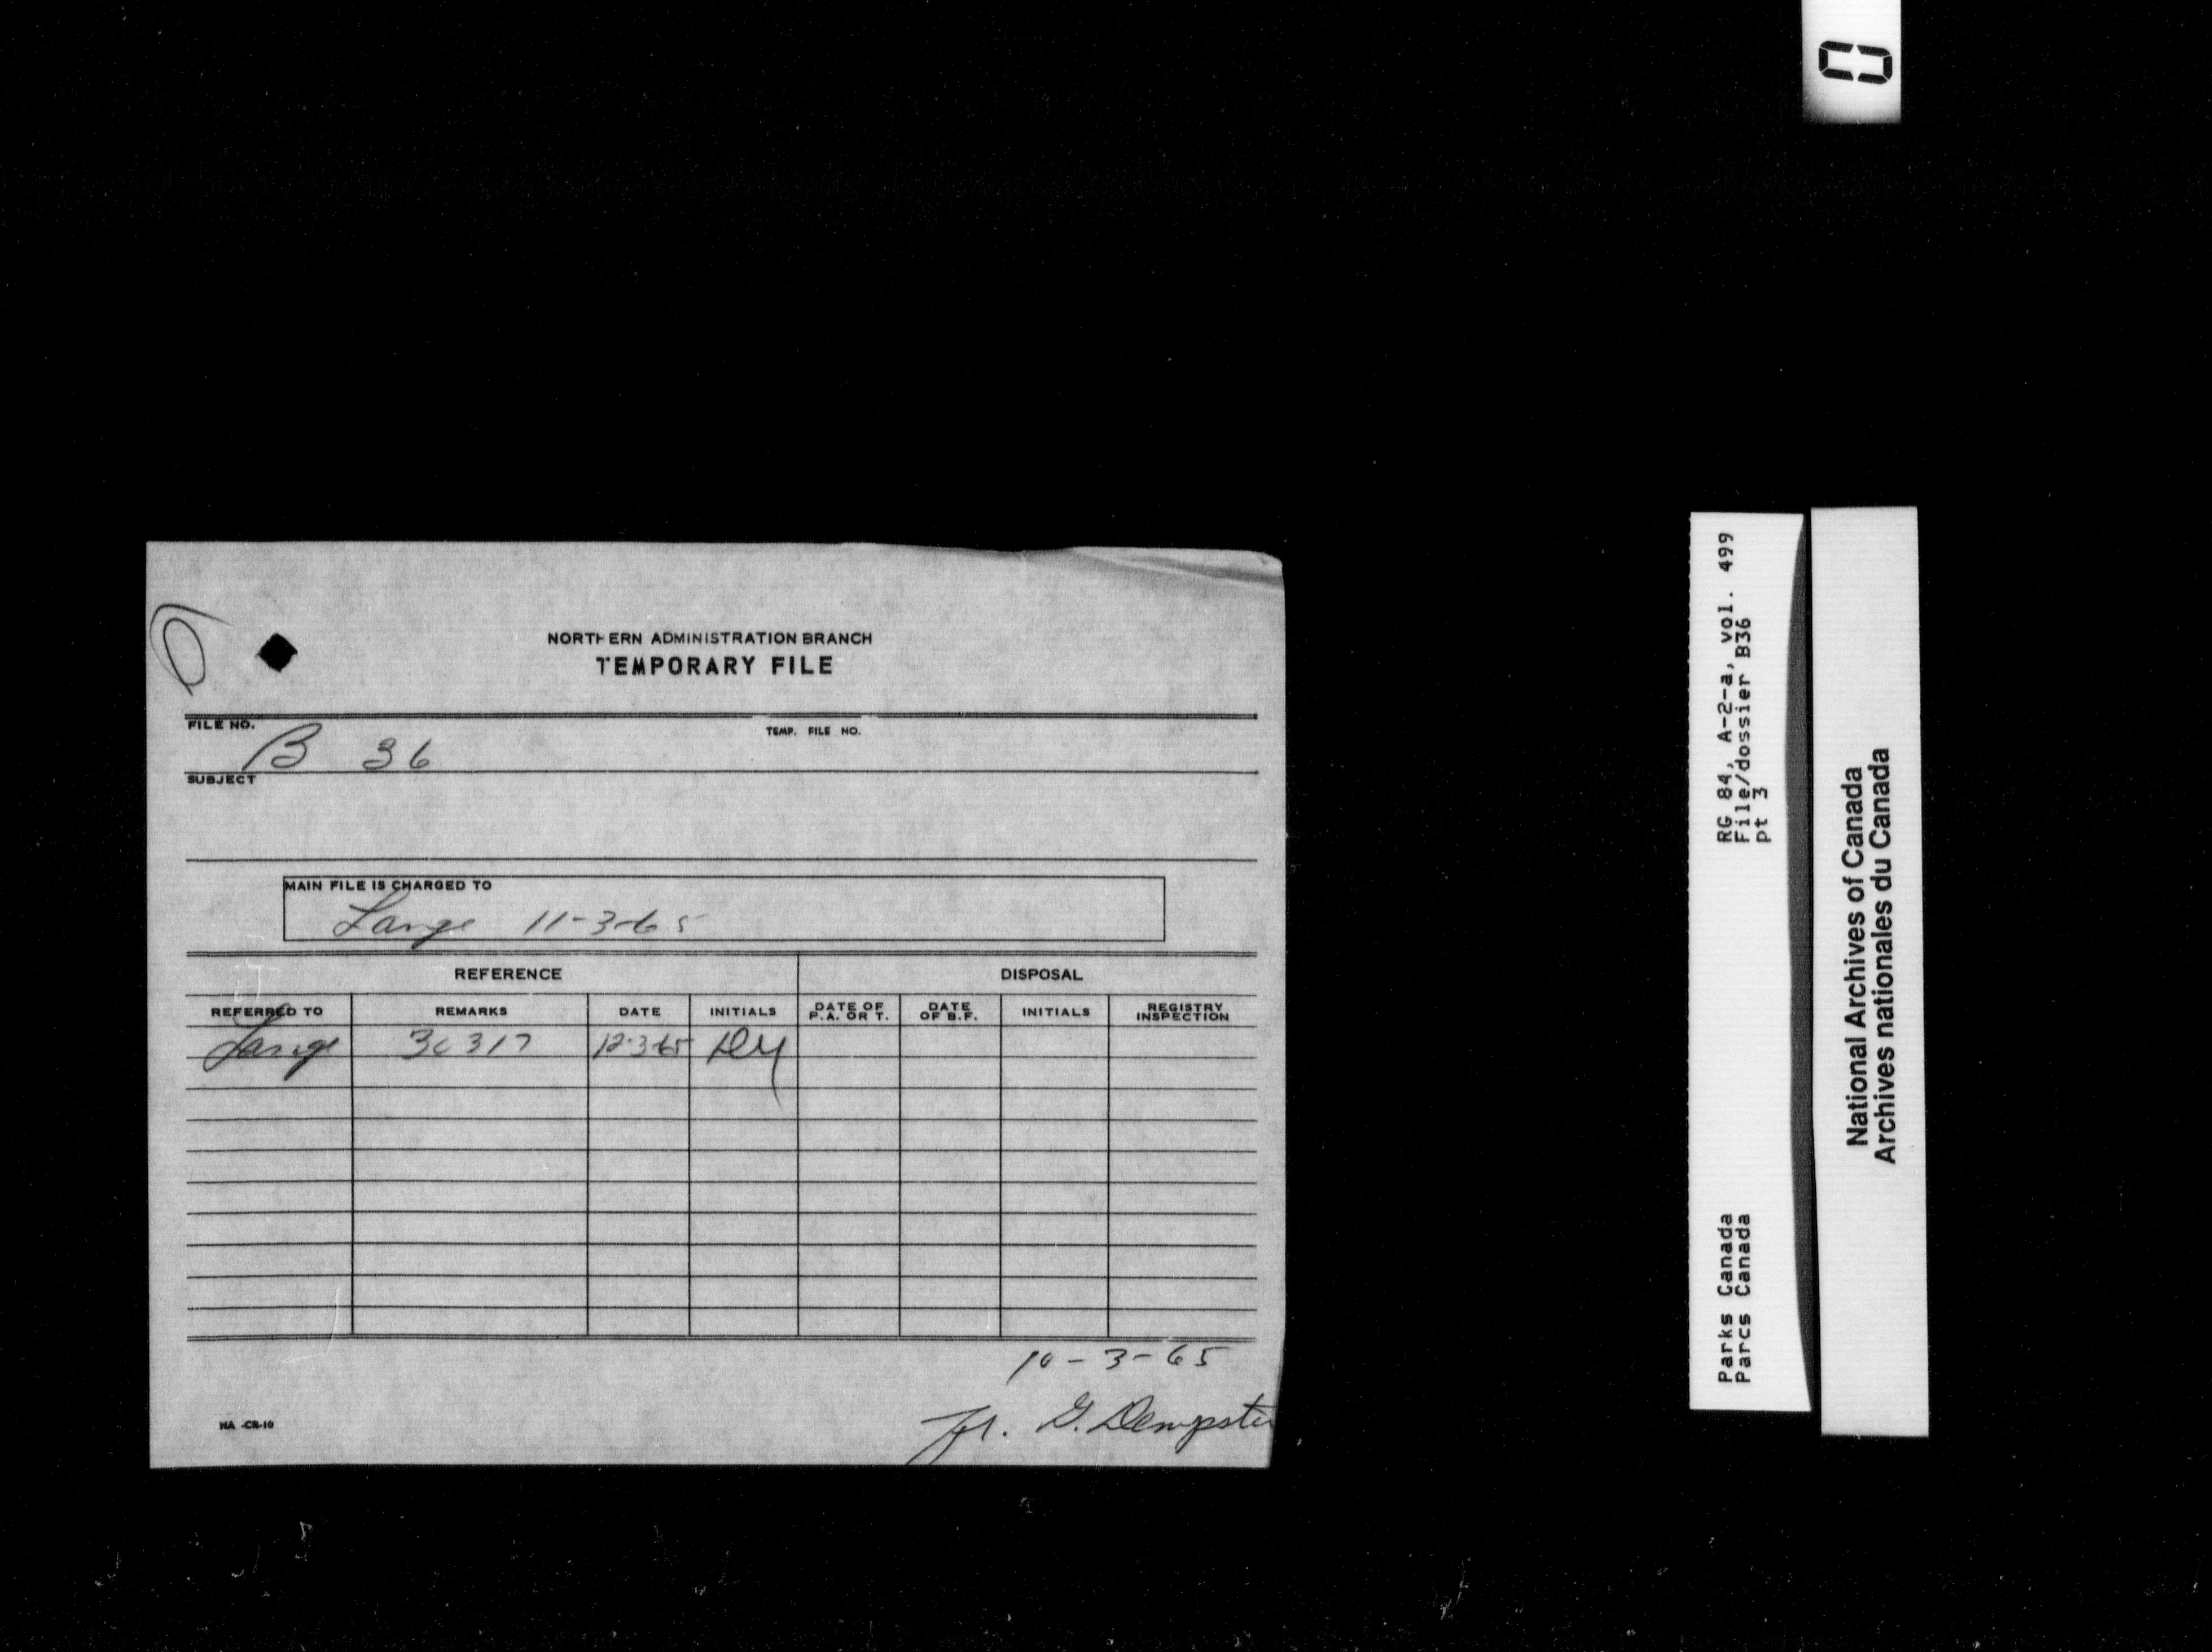 NORTHERN ADMINISTRATION BRANCH
TEMPORARY FILE
FILE NO.
B 36
TEMP. FILE NO.
SUBJECT
MAIN FILE IS CHARGED TO
Lange 11-3-65
REFERENCE
DISPOSAL
REFERRED TO
REMARKS
DATE
INITIALS
DATE OF P.A. OR T.
DATE OF B.F.
INITIALS
REGISTRY INSPECTION
Lange
12-3-65
10-3-65
G. Dempster
NA-CR-10
RG 84, A-2-a, vol. 499
File/dossier B36
pt 3
Parks Canada
Parcs Canada
National Archives of Canada
Archives nationales du Canada